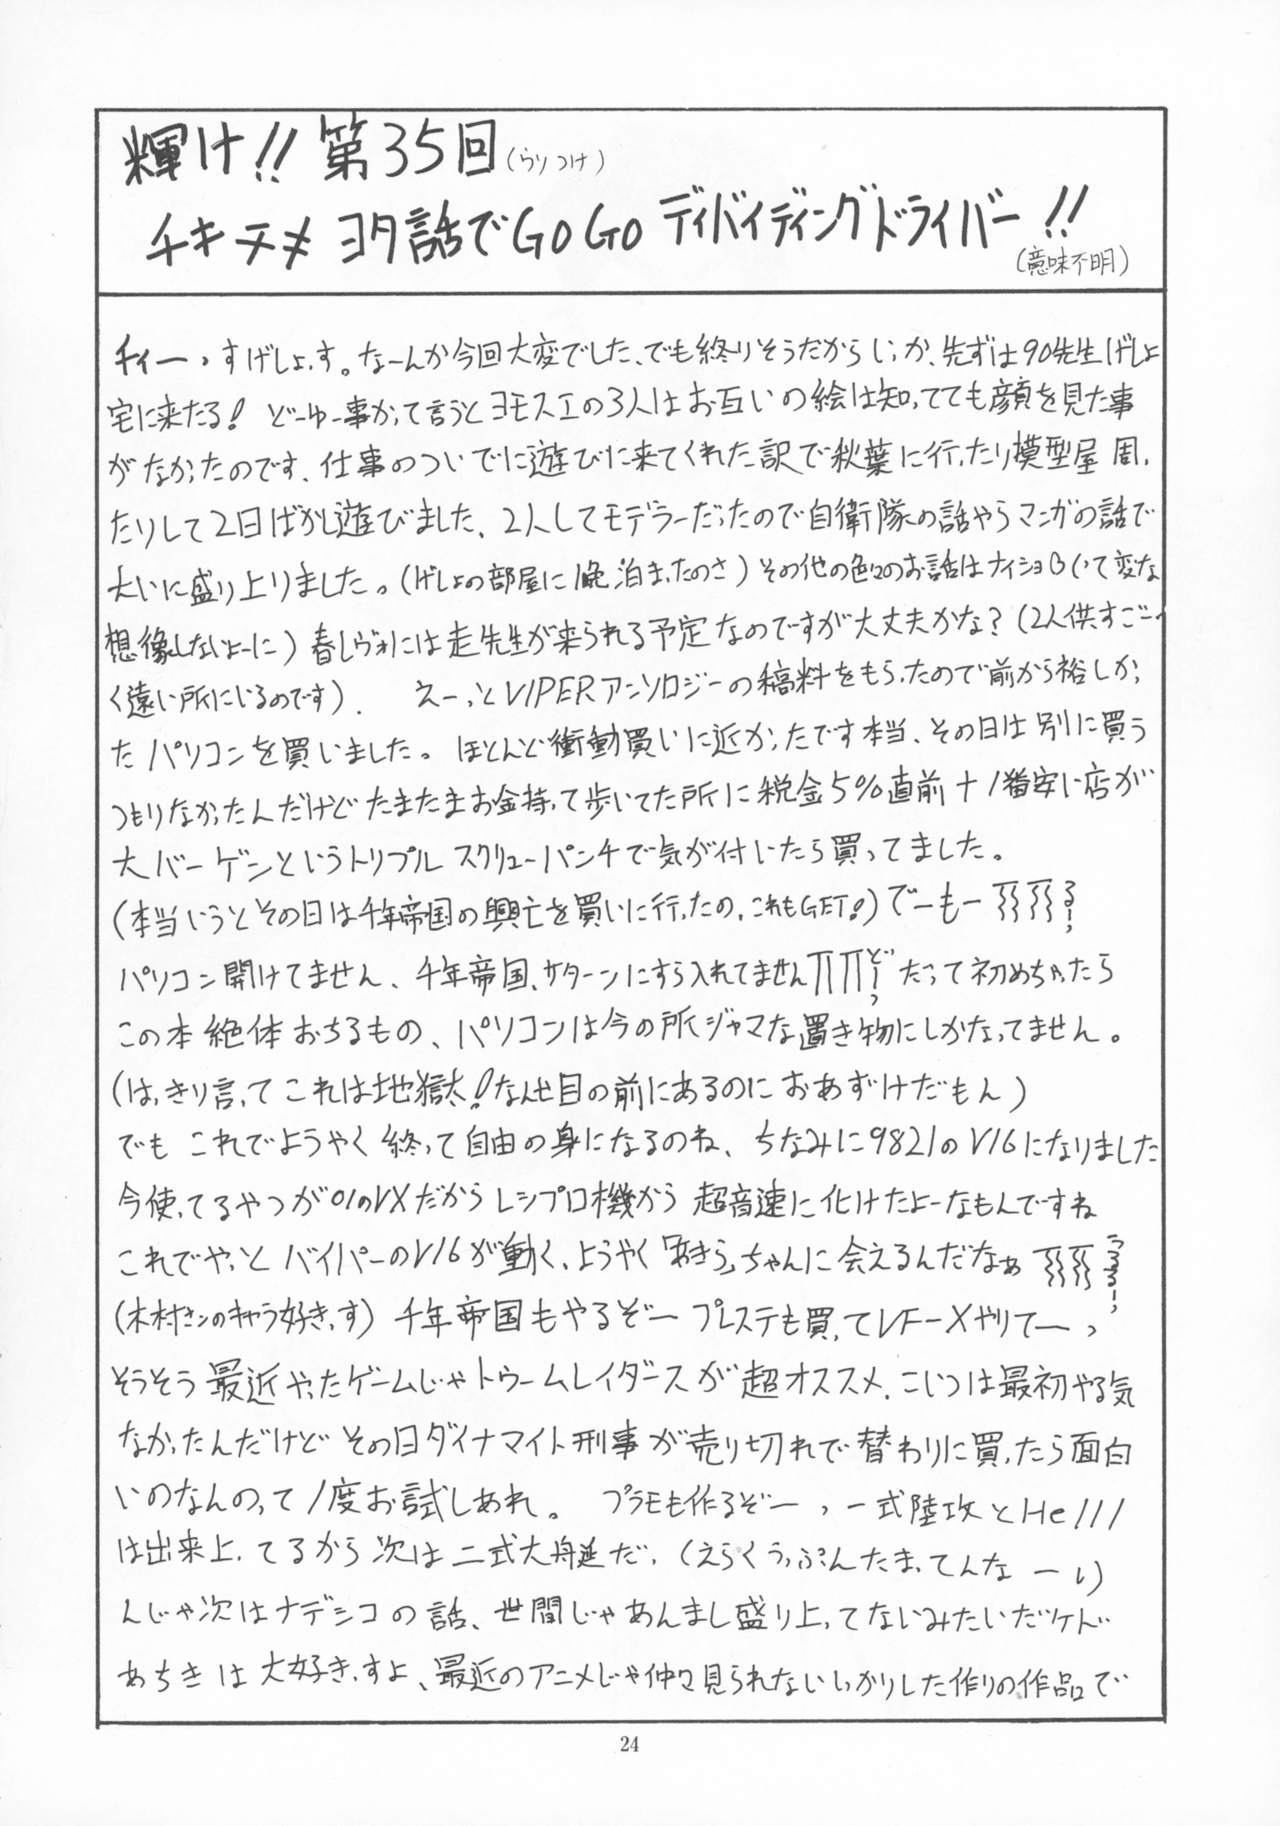 輝け!! 第35回(ウソつけ)
チキチキ ヨタ話でGoGo ディバイディングドライバー!!
(意味不明)
チィーっすげしょっす。なーんか今回大変でした、でも終りそうだからいっか、先ずは90先生げしょ
宅に来たる! どーゆー事かって言うとヨモスエの3人はお互いの絵は知ってても顔を見た事
がなかったのです、仕事のついでに遊びに来てくれた訳で秋葉に行ったり模型屋周っ
たりして2日ばかし遊びました、2人してモデラーだったので自衛隊の話やらマンガの話で
大いに盛り上りました。(げしょの部屋に1晩泊まったのさ)その他の色々のお話はナイショ(って変な
想像しないよーに)春レヴォには走先生が来られる予定なのですが大丈夫かな?(2人供すごーっ
く遠い所にいるのです). えーっとVIPERアンソロジーの稿料をもらったので前から欲しかっ
たパソコンを買いました。ほとんど衝動買いに近かったです本当、その日は別に買う
つもりなかったんだけどたまたまお金持って歩いてた所に税金5%直前+1番安い店が
大バーゲンというトリプルスクリューパンチで気が付いたら買ってました。
(本当いうとその日は千年帝国の興亡を買いに行ったの、これもGET!)でーもー
パソコン開けてません、千年帝国、サターンにすら入れてませんだって初めちゃったら
この本絶体おちるもの、パソコンは今の所ジャマな置き物にしかなってません。
(はっきり言ってこれは地獄だ!なんせ目の前にあるのにおあずけだもん)
でも これでようやく終って自由の身になるのね、ちなみに9821のV16になりました
今使ってるやつが01のVXだからレシプロ機から超音速に化けたよーなもんですね
これでやっとバイパーのV16が動く、ようやく「あきら」ちゃんに会えるんだなぁ
(木村さンのキャラ好きっす) 千年帝国もやるぞー プレステも買ってVF-Xやりてーっ
そうそう最近やったゲームじゃトゥームレイダースが超オススメ、こいつは最初やる気
なかったんだけどその日ダイナマイト刑事が売り切れで替わりに買ったら面白
いのなんのって1度お試しあれ。 プラモも作るぞーっ 一式陸攻とHe111
は出来上ってるから次は二式大艇だ、(えらくうっぷんたまってんなーい)
んじゃ次はナデシコの話、世間じゃあんまし盛り上ってないみたいだケド
あちきは大好きっすよ、最近のアニメじゃ仲々見られないしっかりした作りの作品で
24